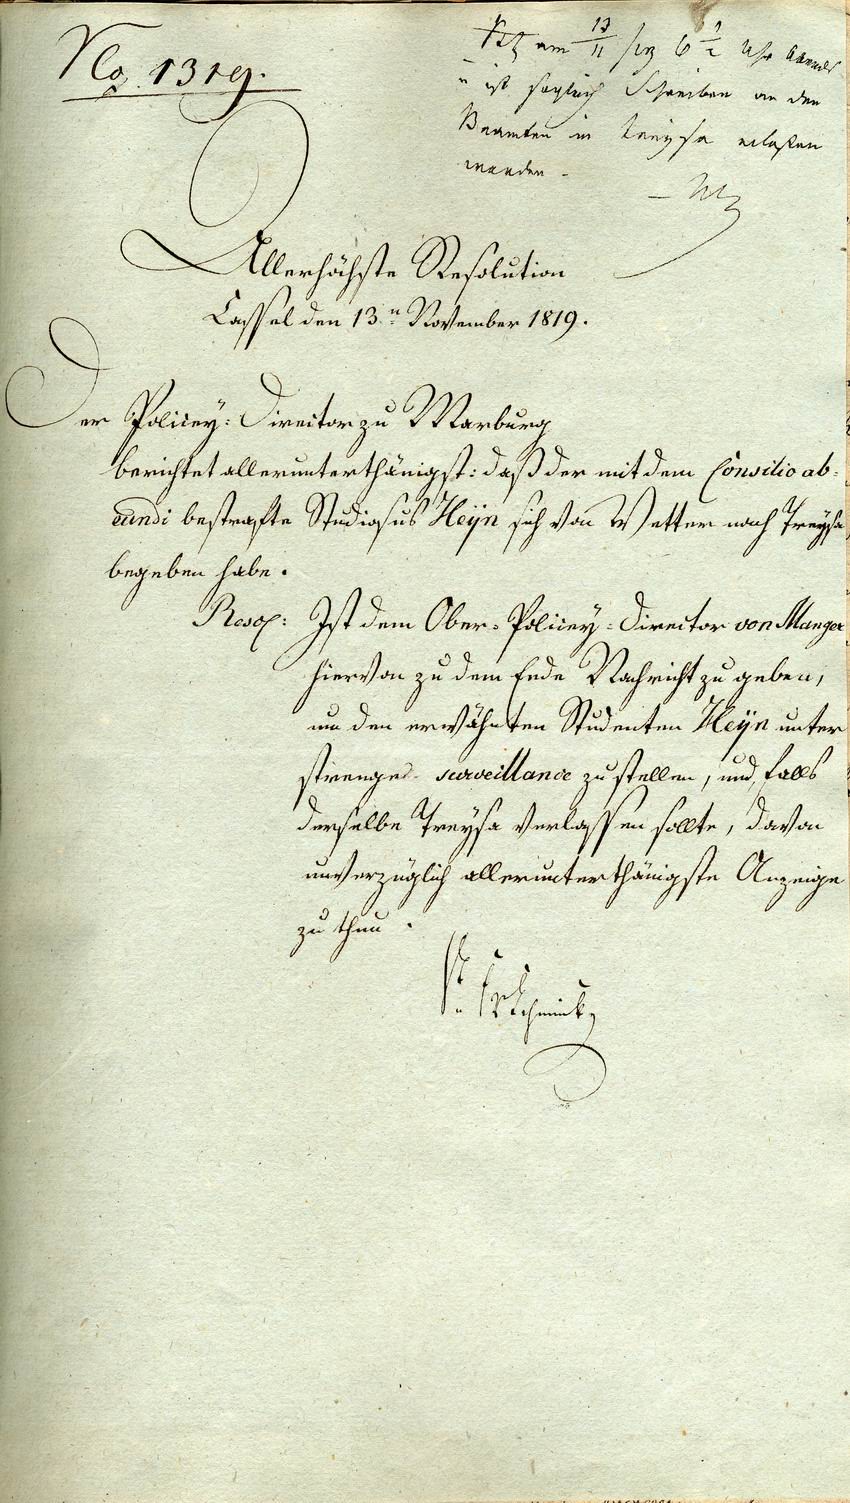 No. 1319.
am 13/11 6 1/2 Uhr Abends
u ist sogleich Schreiben an den
Beamten in Treysa erlaßen
worden.
Allerhöchste Resolution
Cassel den 13n November 1819.
Der Policey-Director zu Marburg
berichtet allerunterthänigst: daß der mit dem Consilio ab-
eundi bestrafte Studiosus Heÿn sich von Wetter nach Treysa
begeben habe.
Resol: Ist dem Ober-Policey-Director von Manger
hiervon zu dem Ende Nachricht zu geben,
um den erwähnten Studenten Heÿn unter
strenge surveillance zu stellen, und, falls
derselbe Treysa verlassen sollte, davon
unverzüglich allerunterthänigste Anzeige
zu thun.
Schmincke